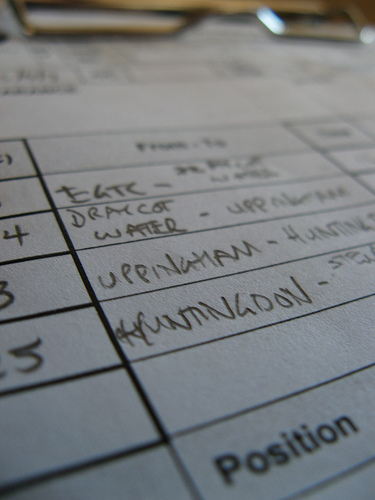 From - To
EGTK - DRAYCOT WATER
4 DRAYCOT WATER - UPPINGHAM
3 UPPINGHAM - HUNTING
25 HUNTINGDON -
Position